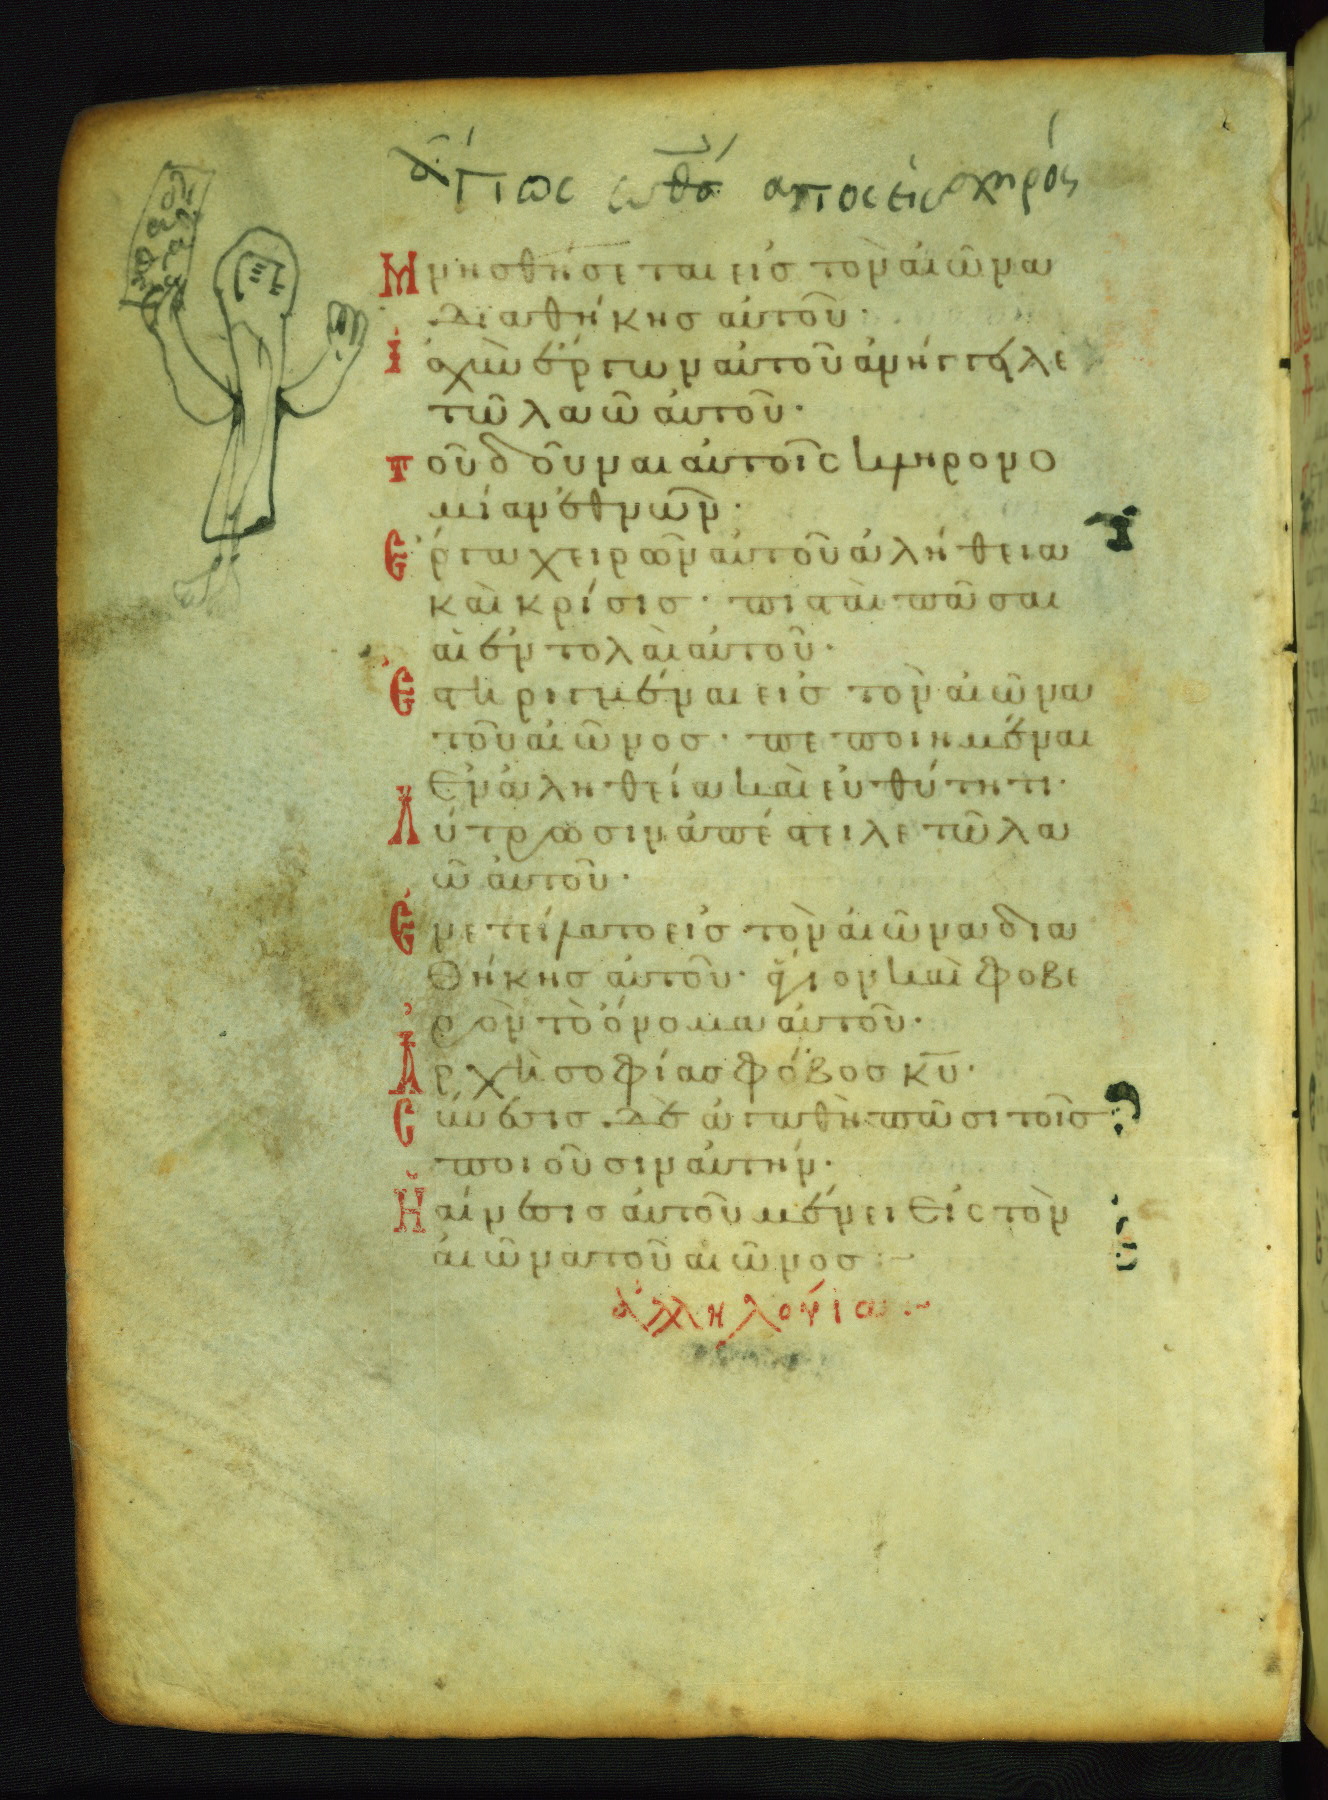 ἅγιος
Μνησθήσεται εἰσ τὸν αἰῶνα
διαθήκησ αὐτοῦ·
Ἰσχὺν ἔργων αὐτοῦ ἀνήγγειλε
τῶ λαῶ αὐτοῦ·
τοῦ δοῦναι αὐτοῖς κληρονο
μίαν ἐθνῶν·
Ἔργα χειρῶν αὐτοῦ ἀλήθεια
καὶ κρίσισ· πισταὶ πᾶσαι
αἱ ἐντολαὶ αὐτοῦ·
Ἐστηριγμέναι εἰσ τὸν αἰῶνα
τοῦ αἰῶνοσ· πεποιημέναι
ἐν ἀληθεία καὶ εὐθύτητι·
Λύτρωσιν ἀπέστειλε τῶ λα
ῶ αὐτοῦ·
Ἐνετείλατο εἰσ τὸν αἰῶνα δια
θήκησ αὐτοῦ· ἅγιον καὶ φοβε
ρὸν τὸ ὄνομα αὐτοῦ·
Ἀρχὴ σοφίασ φόβοσ κ̅υ̅·
Σύνεσισ δὲ ἀγαθὴ πᾶσι τοῖσ
ποιοῦσιν αὐτήν·
Ἡ αίνεσισ αὐτοῦ μένει εἰς τὸν
αἰῶνα τοῦ αἰῶνοσ :~
ἀλληλούια :~